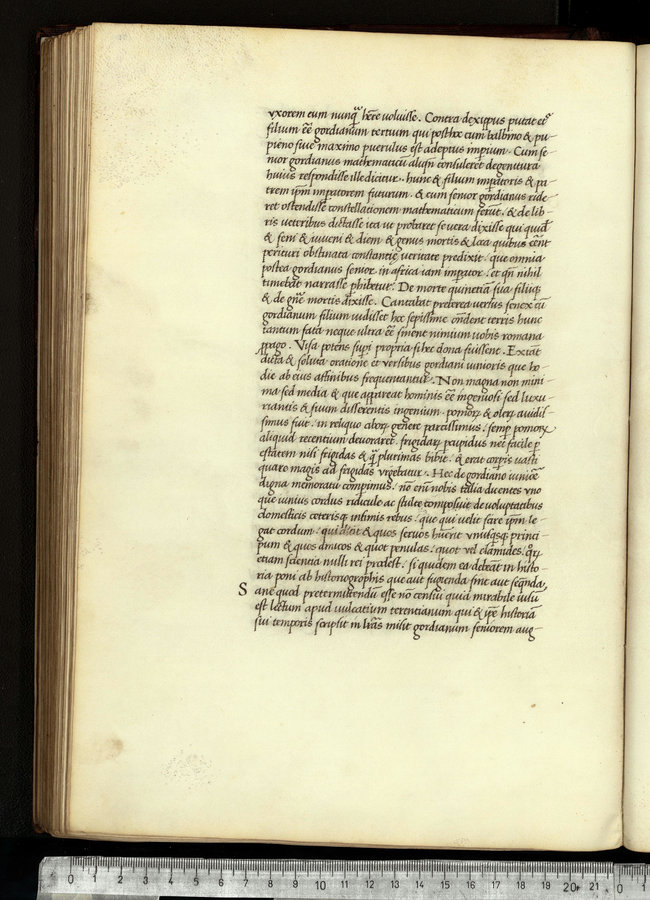 vxorem eum nunq̃ hẽre uoluisse. Contra dexippus putat eiꝰ
filium eẽ gordianum tertium qui posthec cum balbino & pu-
pieno siue maximo puerulus est adeptus imperium. Cum se-
nior gordianus mathematicũ aliqñ consuleret de genitura
huius respondisse ille dicitur. hunc & filium impatoris & pa-
trem ipm̃ impatorem futurum. & cum senior gordianus ride-
ret ostendisse constellationem mathematicum ferũt. & de lib-
ris ueteribus dictasse ita ut probaret se uera dixisse qui quid̃
& seni & iuueni & diem & genus mortis & loca quibus eẽnt
perituri obstinata constantię ueritate predixit. que omnia
postea gordianus senior in africa iam impator. et qñ nihil
timebat narrasse phibetur. De morte quinetiã sua filiiqꝫ
& de gñe mortis dixisse. Cantabat preterea uersus senex cũ
gordianum filium uidisset hos sepissime ondent terris hunc
tantum fata neque ultra eẽ sinent nimium uobis romana
ppago. Visa potens supi propria si hec dona fuissent. Extãt
dicta & soluta oratione et versibus gordiani iunioris que ho-
die ab eius affinibus frequentantur. Non magna non mini-
ma sed media & que appareat hominis eẽ ingeniosi sed luxu-
riantis & suum disserentis ingenium. pomoꝝ & oleꝝ auidis-
simus fuit. in reliquo ciboꝝ genere parcissimus. semp pomoꝝ
aliquid recentium deuoraret. frigidaꝝ pcupidus nec facile p
estatem nisi frigidas & q̃ plurimas bibit. & erat corpis uasti
quare magis ad frigidas vrgebatur. Hec de gordiano iuniore
digna memoratu comperimus. nõ enĩ nobis talia ducentes vno
que iunius cordus ridicule ac stulte composuit de uoluptatibus
domesticis ceterisqꝫ infimis rebus. que qui uelit scire ipm̃ le-
gat cordum. qui dicit & quos seruos habuerit vnusqꝫsqꝫ princi-
pum & quos amicos & quot penulas. quot vel clamides. qꝛꝝ
etiam scientia nulli rei prodest. si quidem ea debeãt in histo-
ria poni ab historiographis que aut fugienda sint aut seqũda.
Sane quod pretermittendũ esse nõ censui quia mirabile uisũ
est lectum apud uulcatium terentianum qui & ipẽ historiã
sui temporis scripsit in lr̃as misit gordianum seniorem aug-